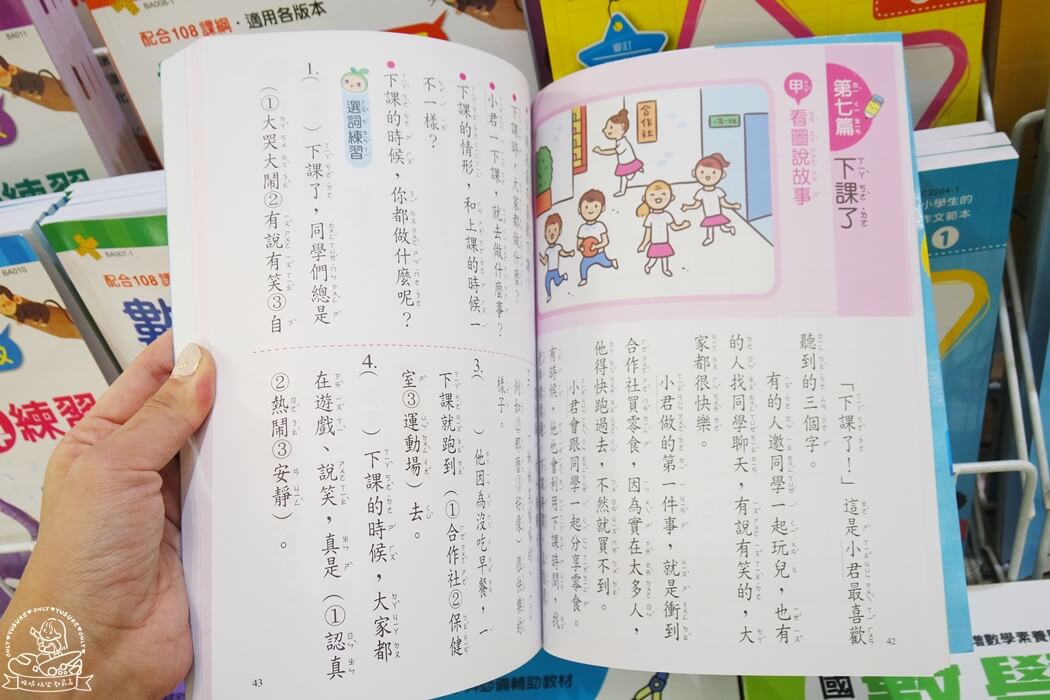 第七篇 下課了
甲 看圖說故事
合作社
「下課了！」這是小君最喜歡
聽到的三個字。
有的人邀同學一起玩兒，也有
的人找同學聊天，有說有笑的，大
家都很快樂。
小君做的第一件事，就是衝到
合作社買零食，因為實在太多人，
他得快跑過去，不然就買不到。
小君會跟同學一起分享零食。
有時候，他也會利用下課時間，找
42
小君一下課，就去做什麼事？
下課的情形，和上課的時候一
不一樣？
下課的時候，你都做什麼呢？
選詞練習
1.（ ）下課了，同學們總是
（①大哭大鬧②有說有笑③自
樣子。
3.（ ）他因為沒吃早餐，一
下課就跑到（①合作社②保健
室③運動場）去。
4.（ ）下課的時候，大家都
在遊戲、說笑，真是（①認真
②熱鬧③安靜）。
43
配合108課綱·適用各版本
BA011
BA010
BA007-1
配合108課
數
練習
練習
審訂
C2204-1
小學生的
作文範本
1
輔助教材
數學素養
ONLY♥YUSUKE♥ONLY♥YUSUKE♥ONLY